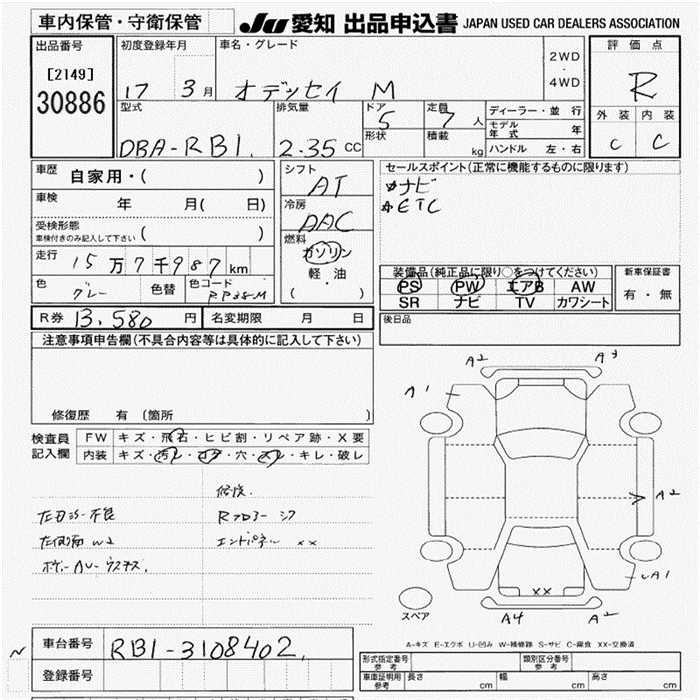 車内保管・守衛保管
JU 愛知 出品申込書 JAPAN USED CAR DEALERS ASSOCIATION
出品番号
[2149]
30886
初度登録年月
17 3月
車名・グレード
オデッセイ M
2WD
・
4WD
評価点
R
外装 内装
C C
型式
DBA-RB1
排気量
2.35 CC
ドア
5
形状
定員
7 人
積載
kg
ディーラー・並行
モデル年式 年
ハンドル 左・右
車歴
自家用・( )
車検
年 月( 日)
受検形態
車検付きのみ記入して下さい ( )
走行
15万7千987km
色
グレー
色替
色コード
シフト
AT
冷房
AAC
燃料
ガソリン
軽・油
( )
セールスポイント(正常に機能するものに限ります)
ナビ
ETC
装備品(純正品に限り○をつけてください)
PS PW エアB AW
SR ナビ TV カワシート
新車保証書
有・無
R券 13,580 円 名変期限 月 日
後日品
注意事項申告欄(不具合内容等は具体的に記入して下さい)
修復歴 有 〔箇所
検査員
記入欄
FW キズ・飛石・ヒビ割・リペア跡・X要
内装 キズ・汚レ・コゲ・穴・スレ・キレ・破レ
修復.
Rフロアー シワ
エンドパネル ××
A2 A3
A1
A2
A1
××
A4 A2
スペア
A-キズ E-エクボ U-凹み W-補修跡 S-サビ C-腐食 XX-交換済
車台番号 RB1-3108402
登録番号
形式指定番号 参考 類別区分番号 参考
車庫証明用 参考 長さ cm 幅 cm 高さ cm